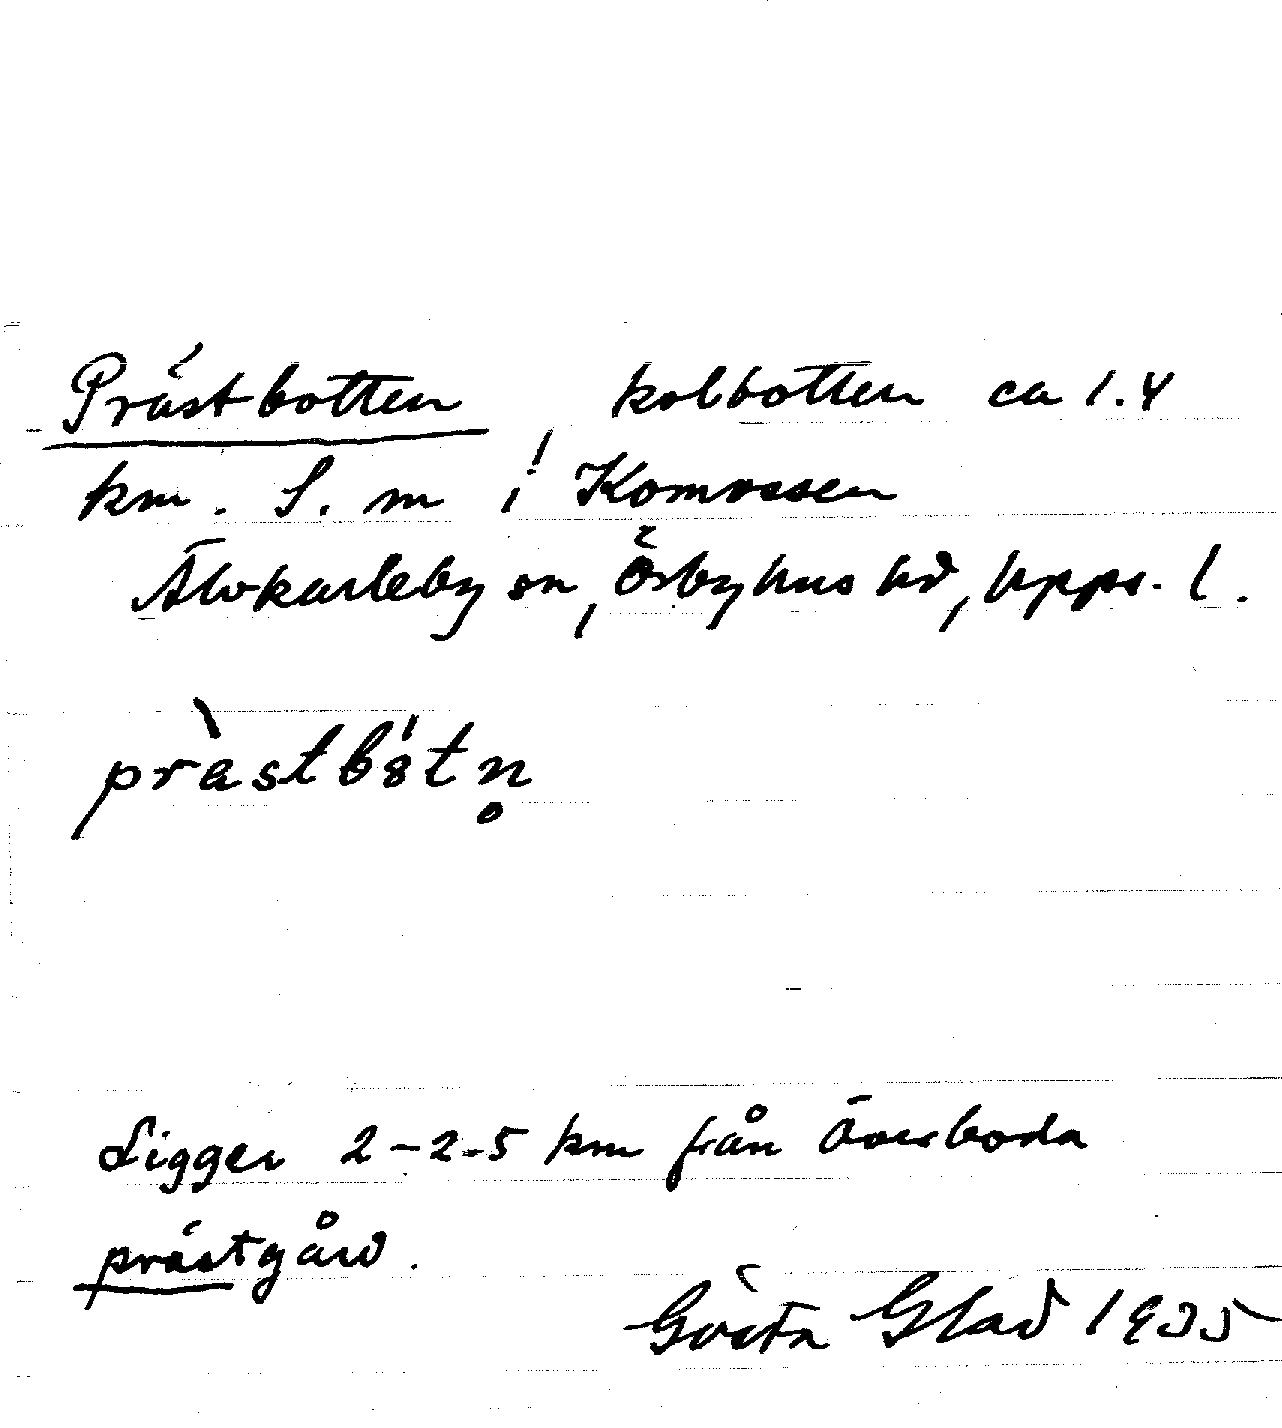 Prästbotten kolbotten ca 1.4
km. S. m i! Komossen
Älvkarleby sn, Örbyhus hd, Upps. l.
pràstbó̀tn̥
Ligger 2-2.5 km från Överboda
prästgård.
Gösta Glad 1935